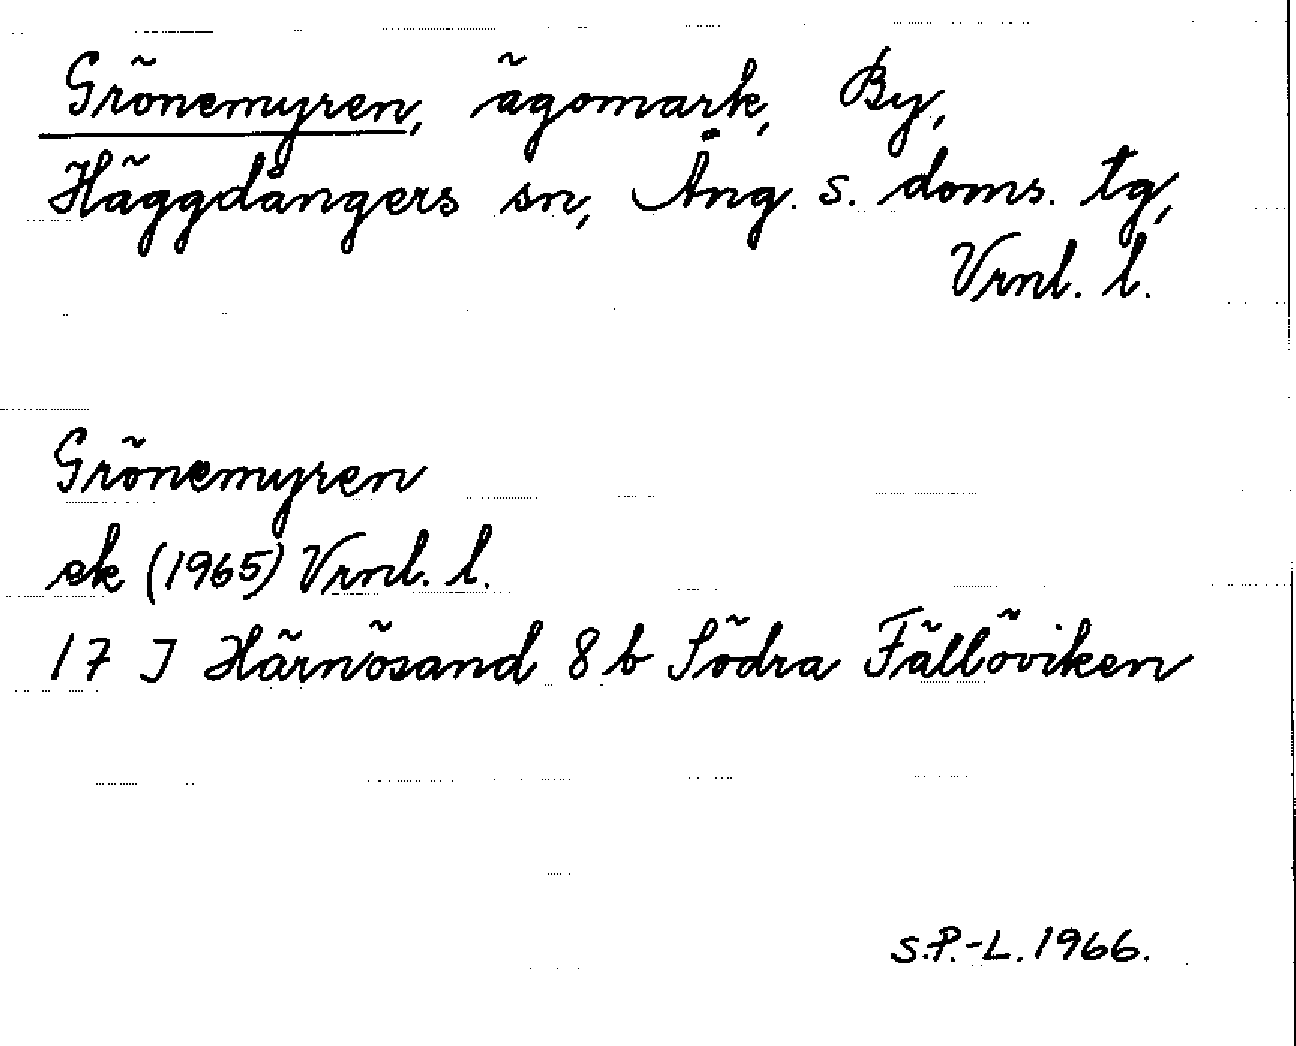 Grönemyren, ägomark, By,
Häggdångers sn, Ång. s. doms. tg,
Vrnl. l.
Grönemyren
ek (1965) Vrnl. l.
17 I Härnösand 8 b Södra Fällöviken
S.P.-L. 1966.